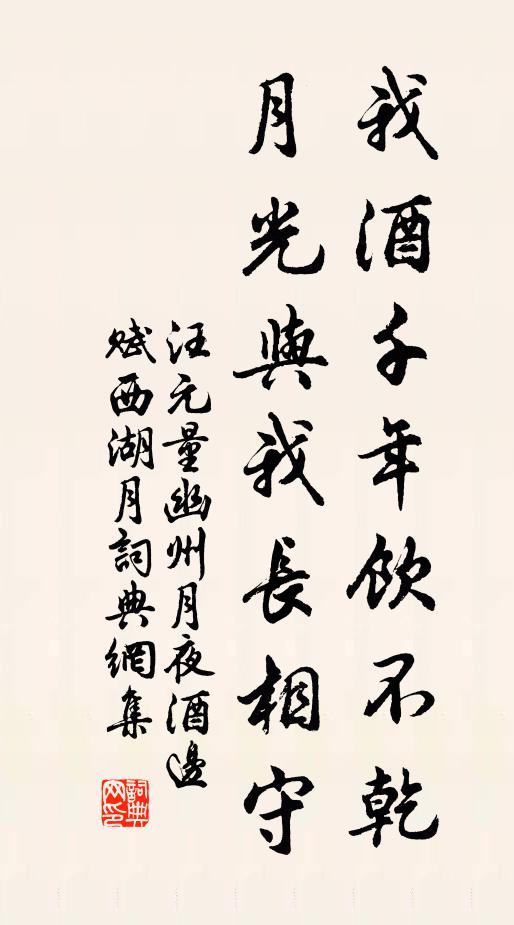 我酒千年飲不乾
月光與我長相守
汪元量幽州月夜酒邊
賦西湖月詞典網集
詞典
网印